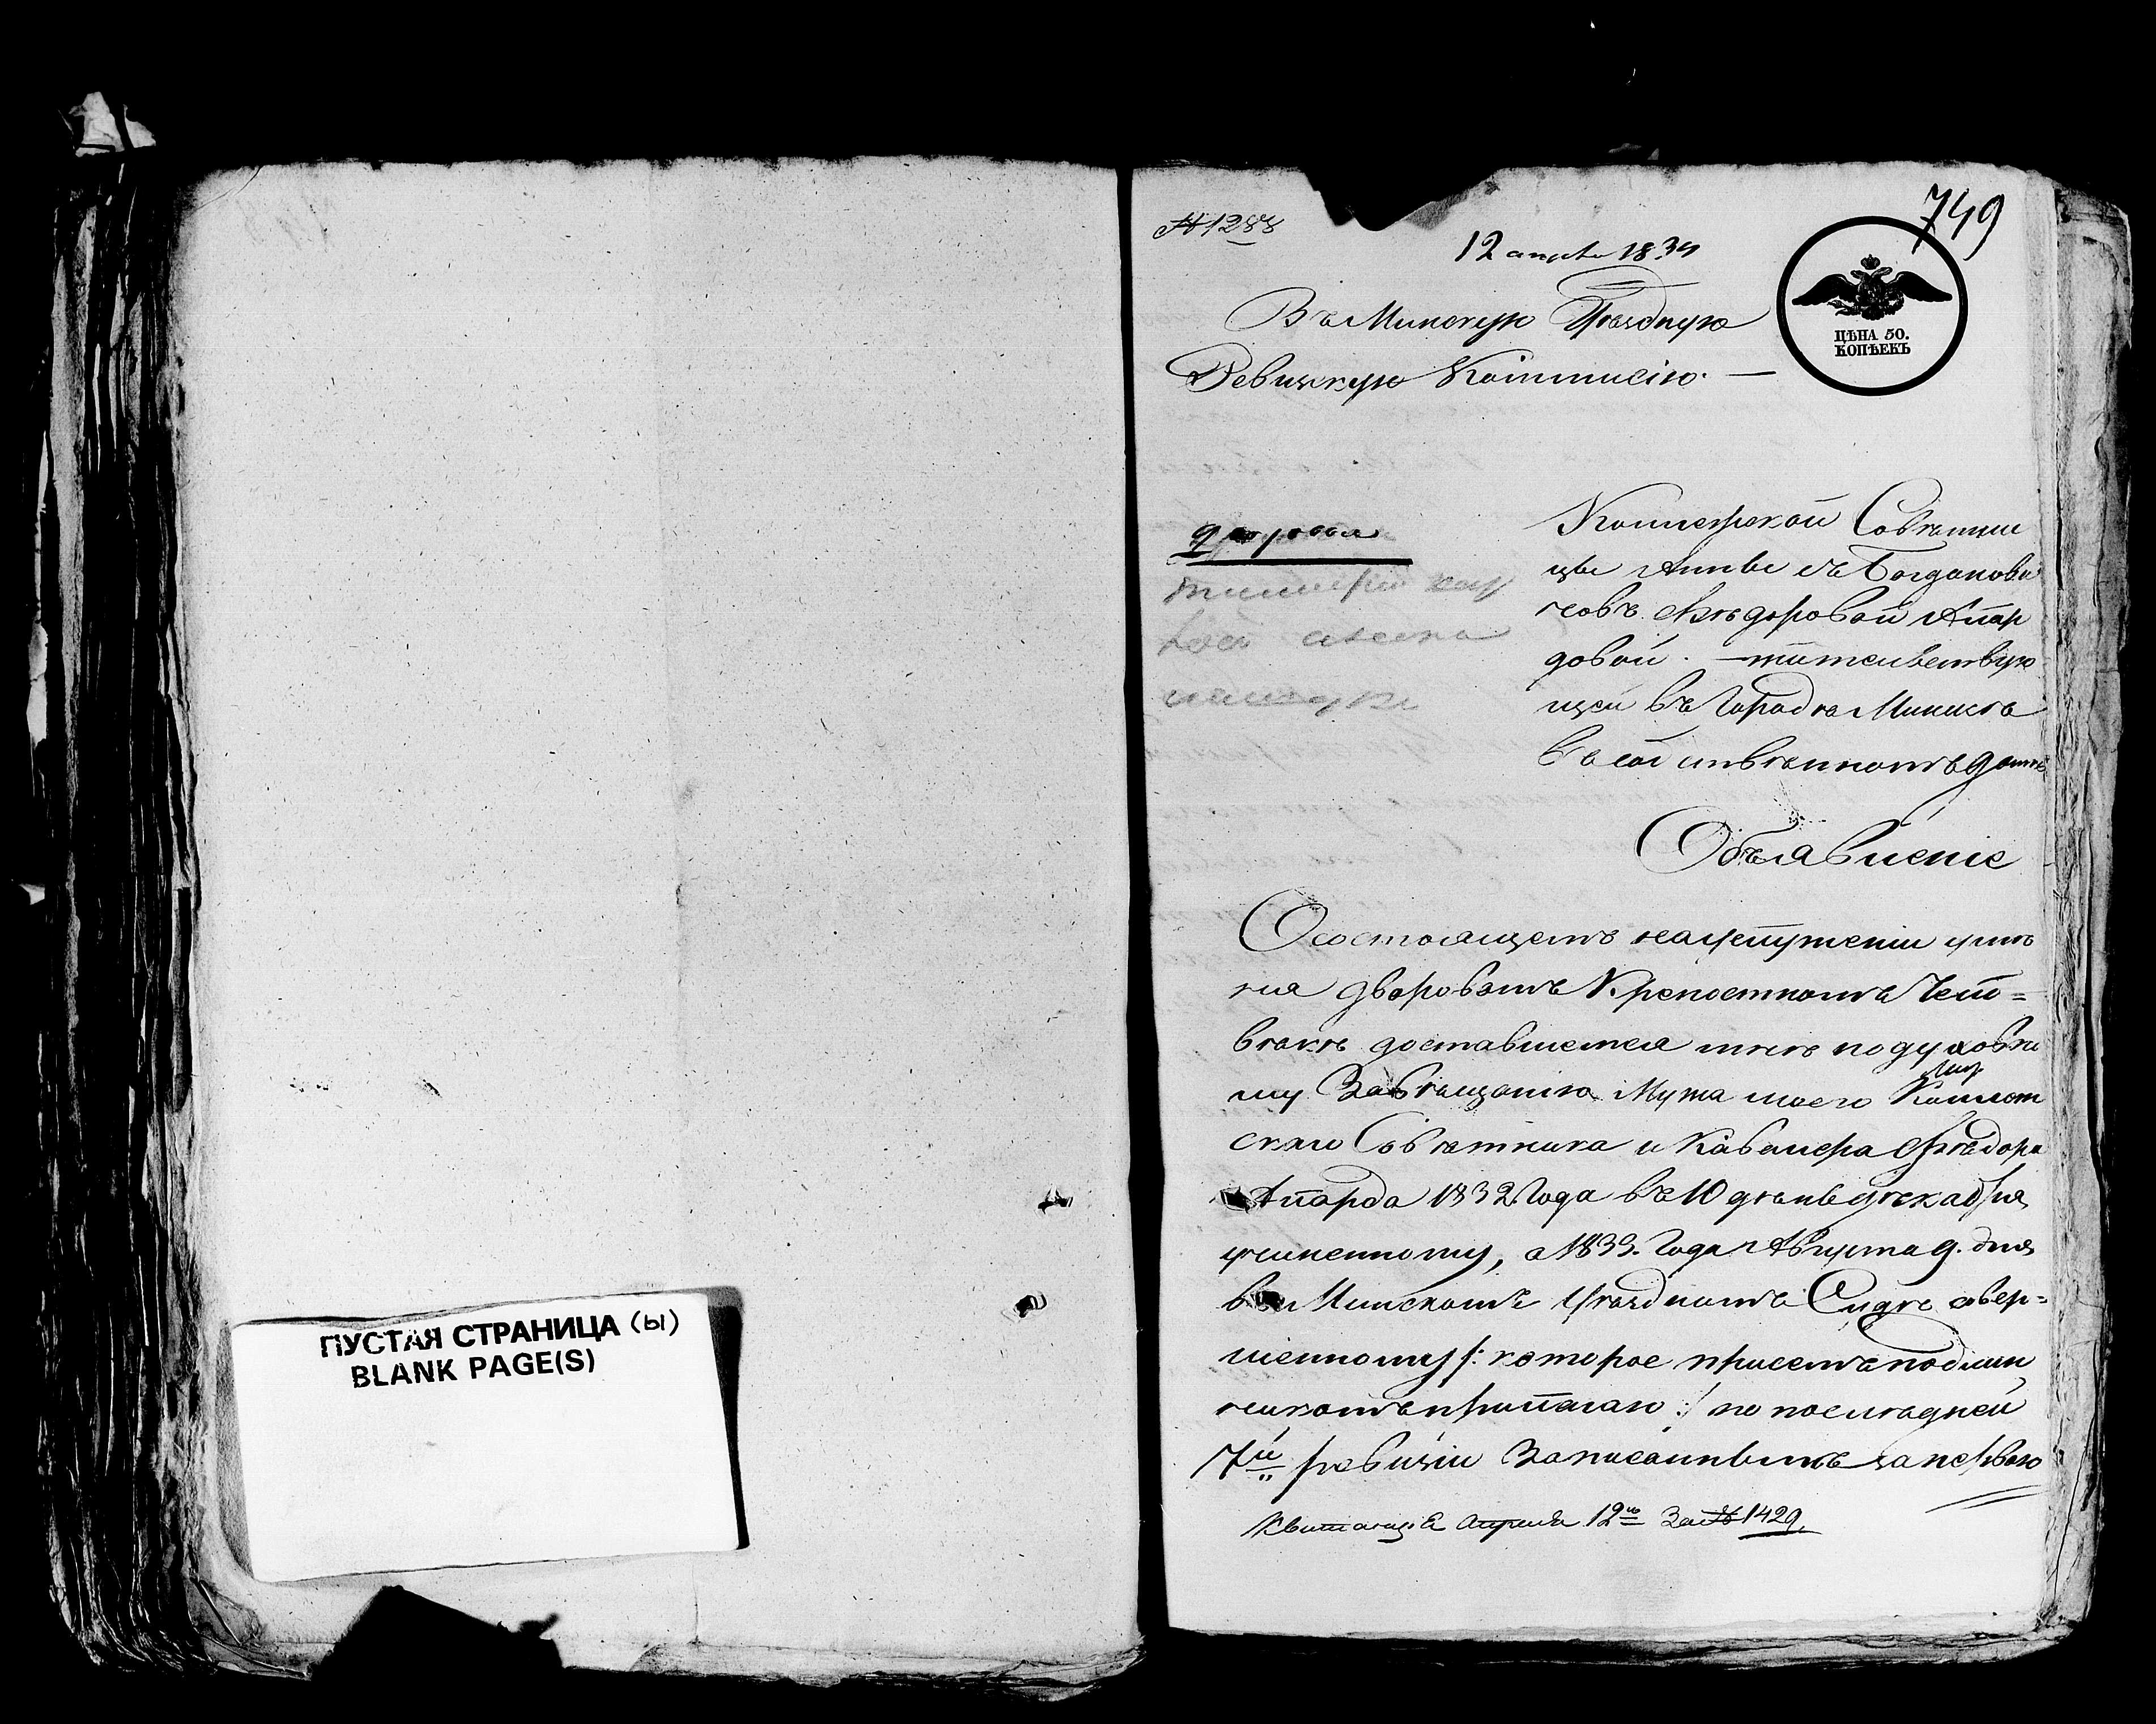 ПУСТАЯ СТРАНИЦА (ы)
BLANK PAGE(S)
749
№ 1288
12 апреля 1834
ЦѢНА 50.
КОПѢЕКЪ
Въ Минскую Уѣздную
Ревизкую Коммисiю. —
Коллежской Совѣтни
цы Анны съ Богданови
човъ Ѳѣдоровой Апар
довой. — жительствую
щей въ Городѣ Минскѣ
въ собственномъ домѣ
Объявленіе
О состоящемъ въ
дворовомъ Крепостномъ Чело=
вѣкѣ доставшемся мнѣ по духовно
му Завѣщанію Мужа моего Коллеж
скаго Совѣтника и Кавалера Ѳѣдора
Апарда 1832 Года въ 10 день Декабря
учиненному, а 1833. Года Августа 9. дня
въ Минскомъ Уѣздномъ Судѣ совер=
шенному /: которое при семъ подлин
никомъ прилагаю :/ по последней
7й ревизіи Записаннымъ за
Квитанція Апреля 12го За № 1429.